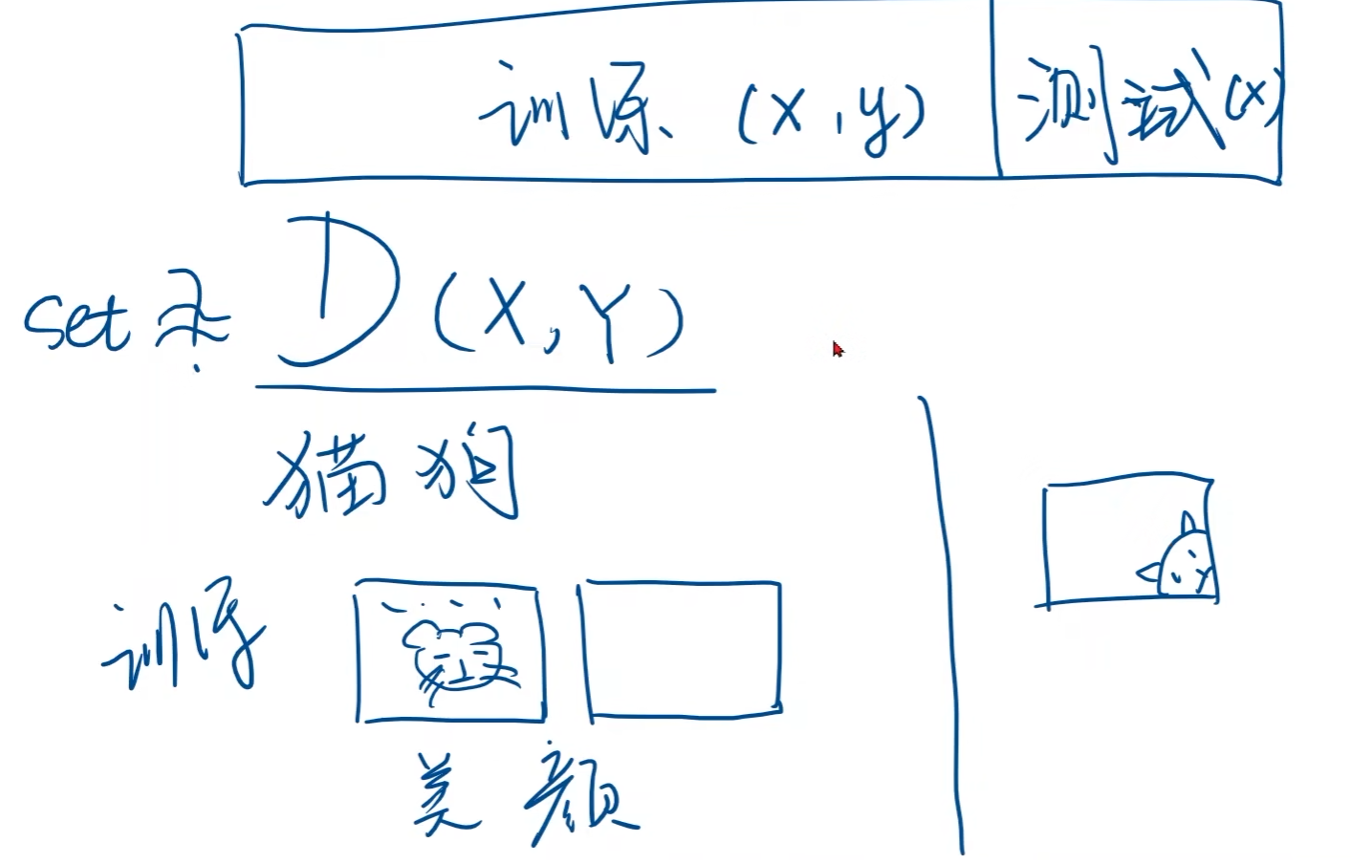 训练 (X,y) 测试(X)
set D(X,Y)
猫 狗
训练
美 颜